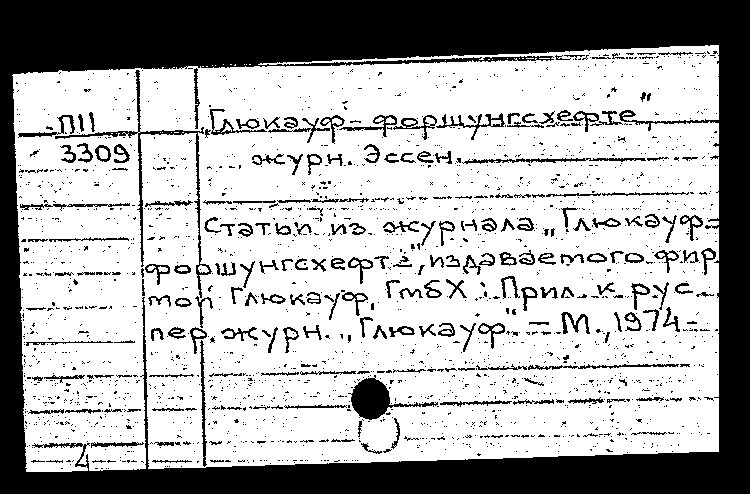 П11
3309
„Глюкауф-форшунгсхефте",
журн. Эссен.
Статьи из журнала „Глюкауф-
форшунгсхефте", издаваемого фир
мой Глюкауф, ГмбХ: Прил. к рус.
пер. журн. „Глюкауф". – М., 1974-
4